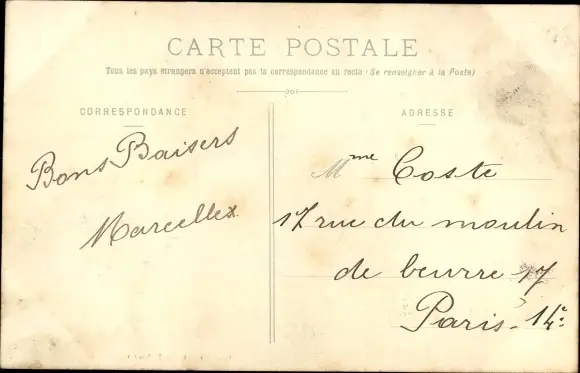 CARTE POSTALE
Tous les pays étrangers n'acceptent pas la correspondance au recto (Se renseigner à la Poste)
CORRESPONDANCE
Bons Baisers
Marcelle
ADRESSE
Mme Coste
17 rue du moulin
de beurre 17
Paris. 14e